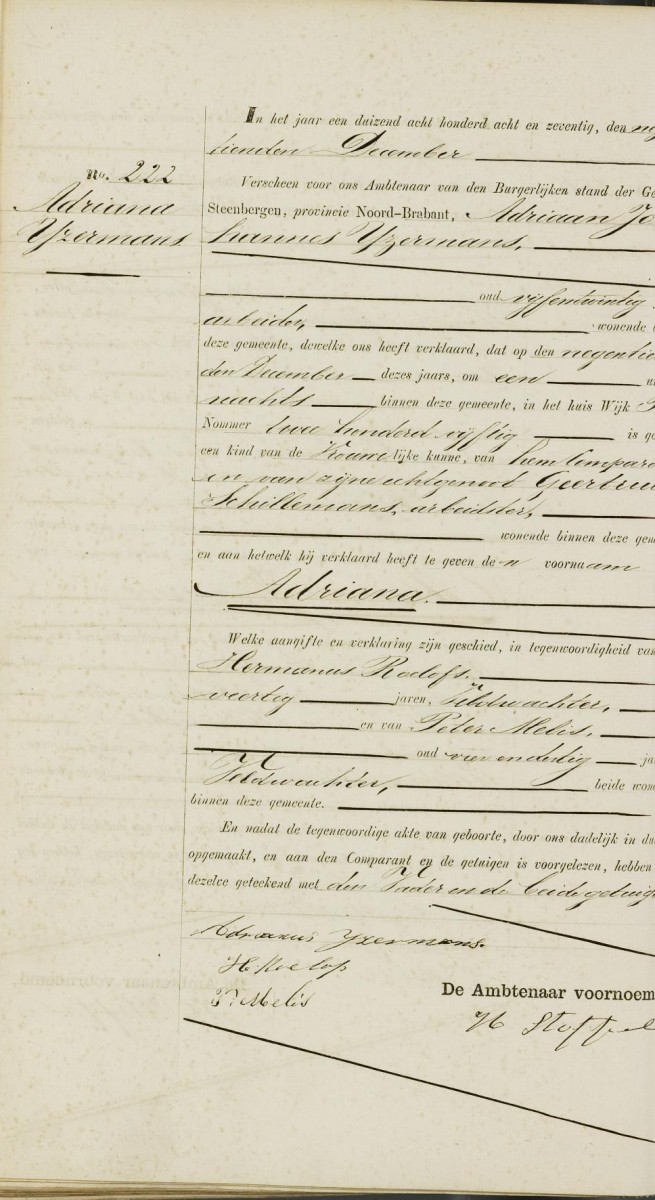 No. 222
Adriana
Yzermans
In het jaar een duizend acht honderd acht en zeventig, den ne
tienden December
Verscheen voor ons Ambtenaar van den Burgerlijken stand der Ge
Steenbergen, provincie Noord-Brabant, Adriaan Jo
hannes Yzermans,
oud vijfentwintig
arbeider, wonende
deze gemeente, dewelke ons heeft verklaard, dat op den negentie
den December dezes jaars, om een u
nachts binnen deze gemeente, in het huis Wijk
Nommer twee honderd vijftig is ge
een kind van de Vrouwelijke kunne, van hem Compara
en van zijne echtgenoot Geertrui
Schillemans, arbeidster,
wonende binnen deze gem
en aan hetwelk hij verklaard heeft te geven den voornaam
Adriana.
Welke aangifte en verklaring zijn geschied, in tegenwoordigheid van
Hermanus Roelofs.
veertig jaren, Veldwachter,
en van Peter Melis,
oud vier en dertig ja
Veldwachter, beide wone
binnen deze gemeente.
En nadat de tegenwoordige akte van geboorte, door ons dadelijk in du
opgemaakt, en aan den Comparant en de getuigen is voorgelezen, hebben
dezelve geteekend met den Vader en de beide getuige
Adrianus Yzermans.
H Roelofs
P Melis
De Ambtenaar voornoem
H Stoffel